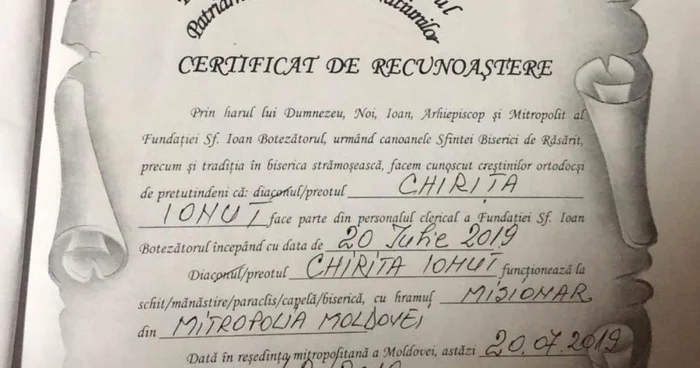 CERTIFICAT DE RECUNOAȘTERE
Prin harul lui Dumnezeu, Noi, Ioan, Arhiepiscop și Mitropolit al
Fundației Sf. Ioan Botezătorul, urmând canoanele Sfintei Biserici de Răsărit,
precum și tradiția în biserica strămoșească, facem cunoscut creștinilor ortodocși
de pretutindeni că: diaconul/preotul CHIRIȚA
IONUȚ face parte din personalul clerical a Fundației Sf. Ioan
Botezătorul începând cu data de 20 Iulie 2019
Diaconul/preotul CHIRIȚA IONUȚ funcționează la
schit/mănăstire/paraclis/capelă/biserică, cu hramul MISIONAR
din MITROPOLIA MOLDOVEI
Dată în reședința mitropolitană a Moldovei, astăzi 20.07.2019